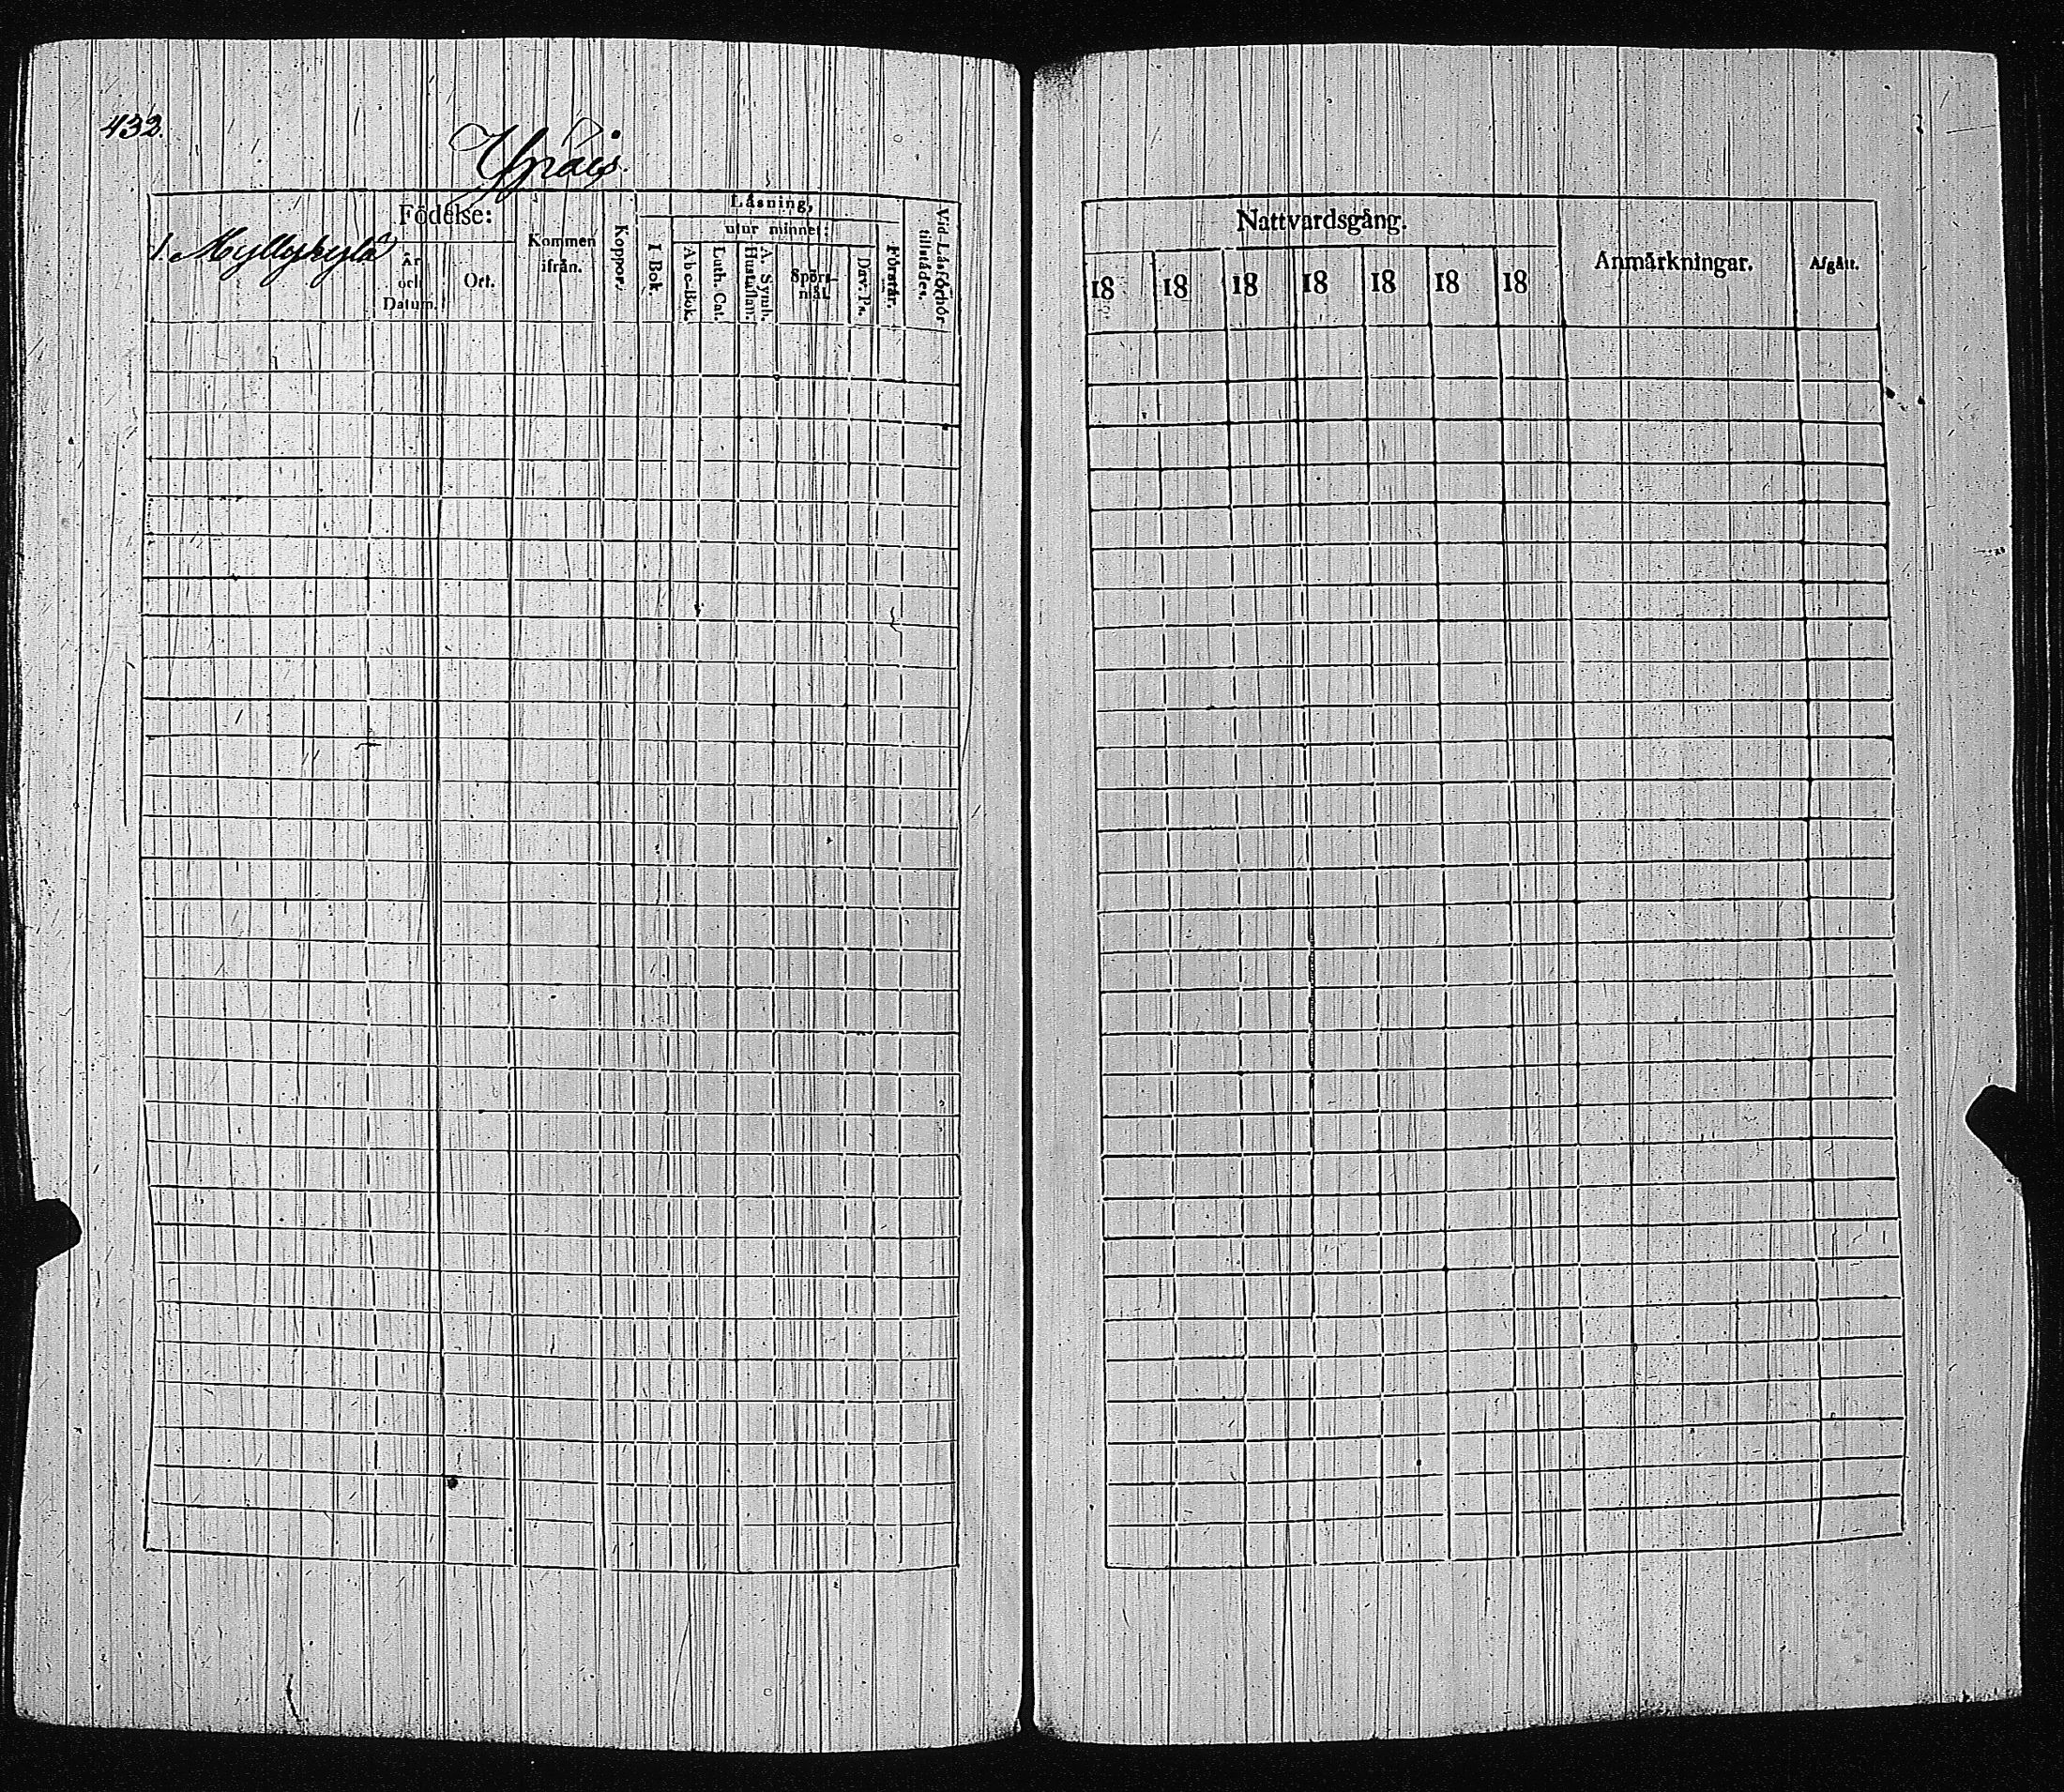 432.
Ypäis.
1. Myllykylä
Födelse:
År
och
Datum.
Ort.
Kommen
ifrån.
Koppor.
Läsning,
I Bok.
utur minnet:
Abc-Bok.
Luth. Cat.
A. Symb.
Hustaflan.
Spörs-
mål.
Dav. Ps.
Förstår.
Vid Läsförhör
tillstädes.
Nattvardsgång.
18 18 18 18 18 18 18
Anmärkningar.
Afgått.